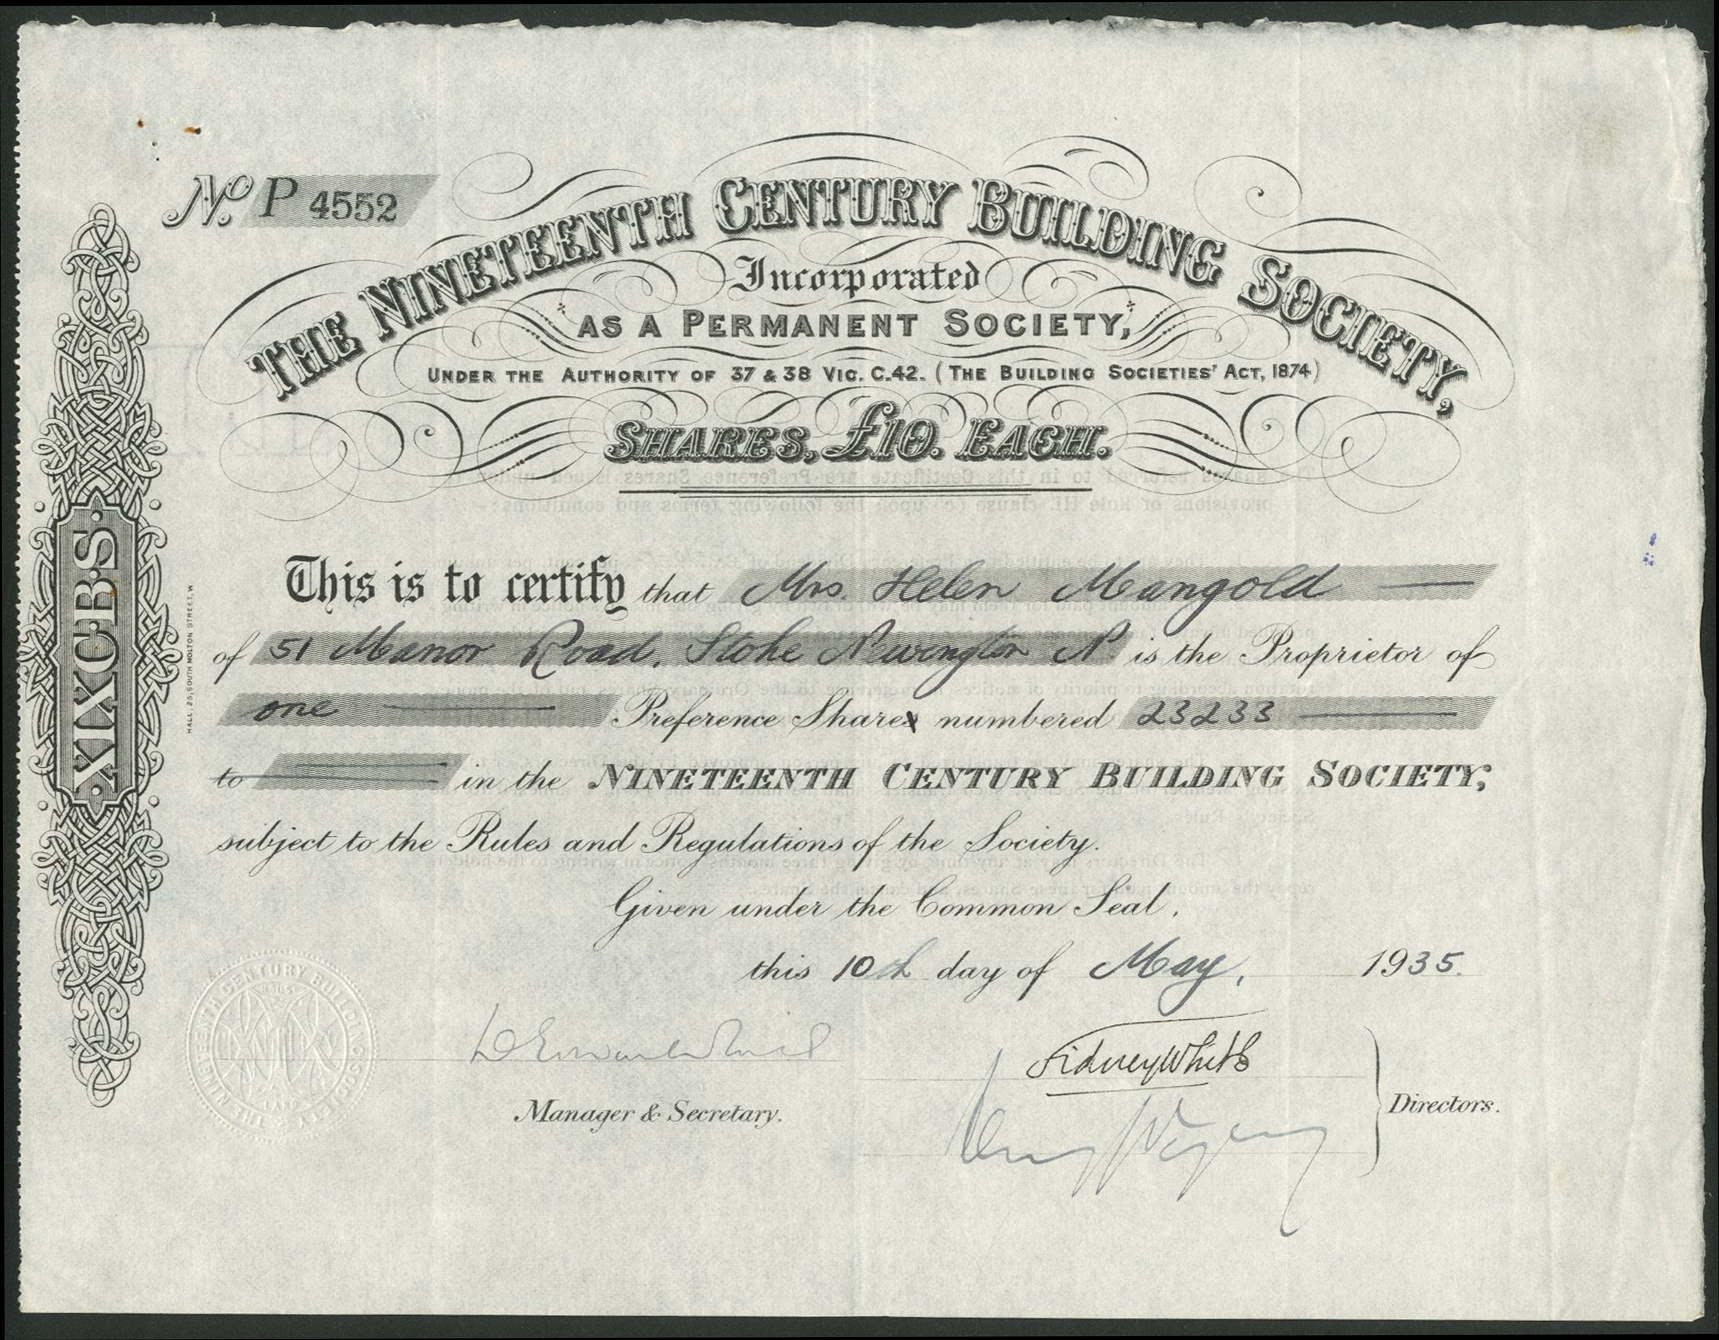 No. P 4552
THE NINETEENTH CENTURY BUILDING SOCIETY,
Incorporated
AS A PERMANENT SOCIETY,
UNDER THE AUTHORITY OF 37 & 38 VIC. C.42. (THE BUILDING SOCIETIES' ACT, 1874)
SHARES, £10. EACH.
This is to certify that Mrs. Helen Mangold
of 51 Manor Road, Stoke Newington N is the Proprietor of
one Preference Share numbered 23233
to in the NINETEENTH CENTURY BUILDING SOCIETY,
subject to the Rules and Regulations of the Society.
Given under the Common Seal,
this 10th day of May, 1935.
Sidney White
Manager & Secretary.
Directors.
XIXC.B.S.
HALL, 25, SOUTH MOLTON STREET, W
THE NINETEENTH CENTURY BUILDING SOCIETY